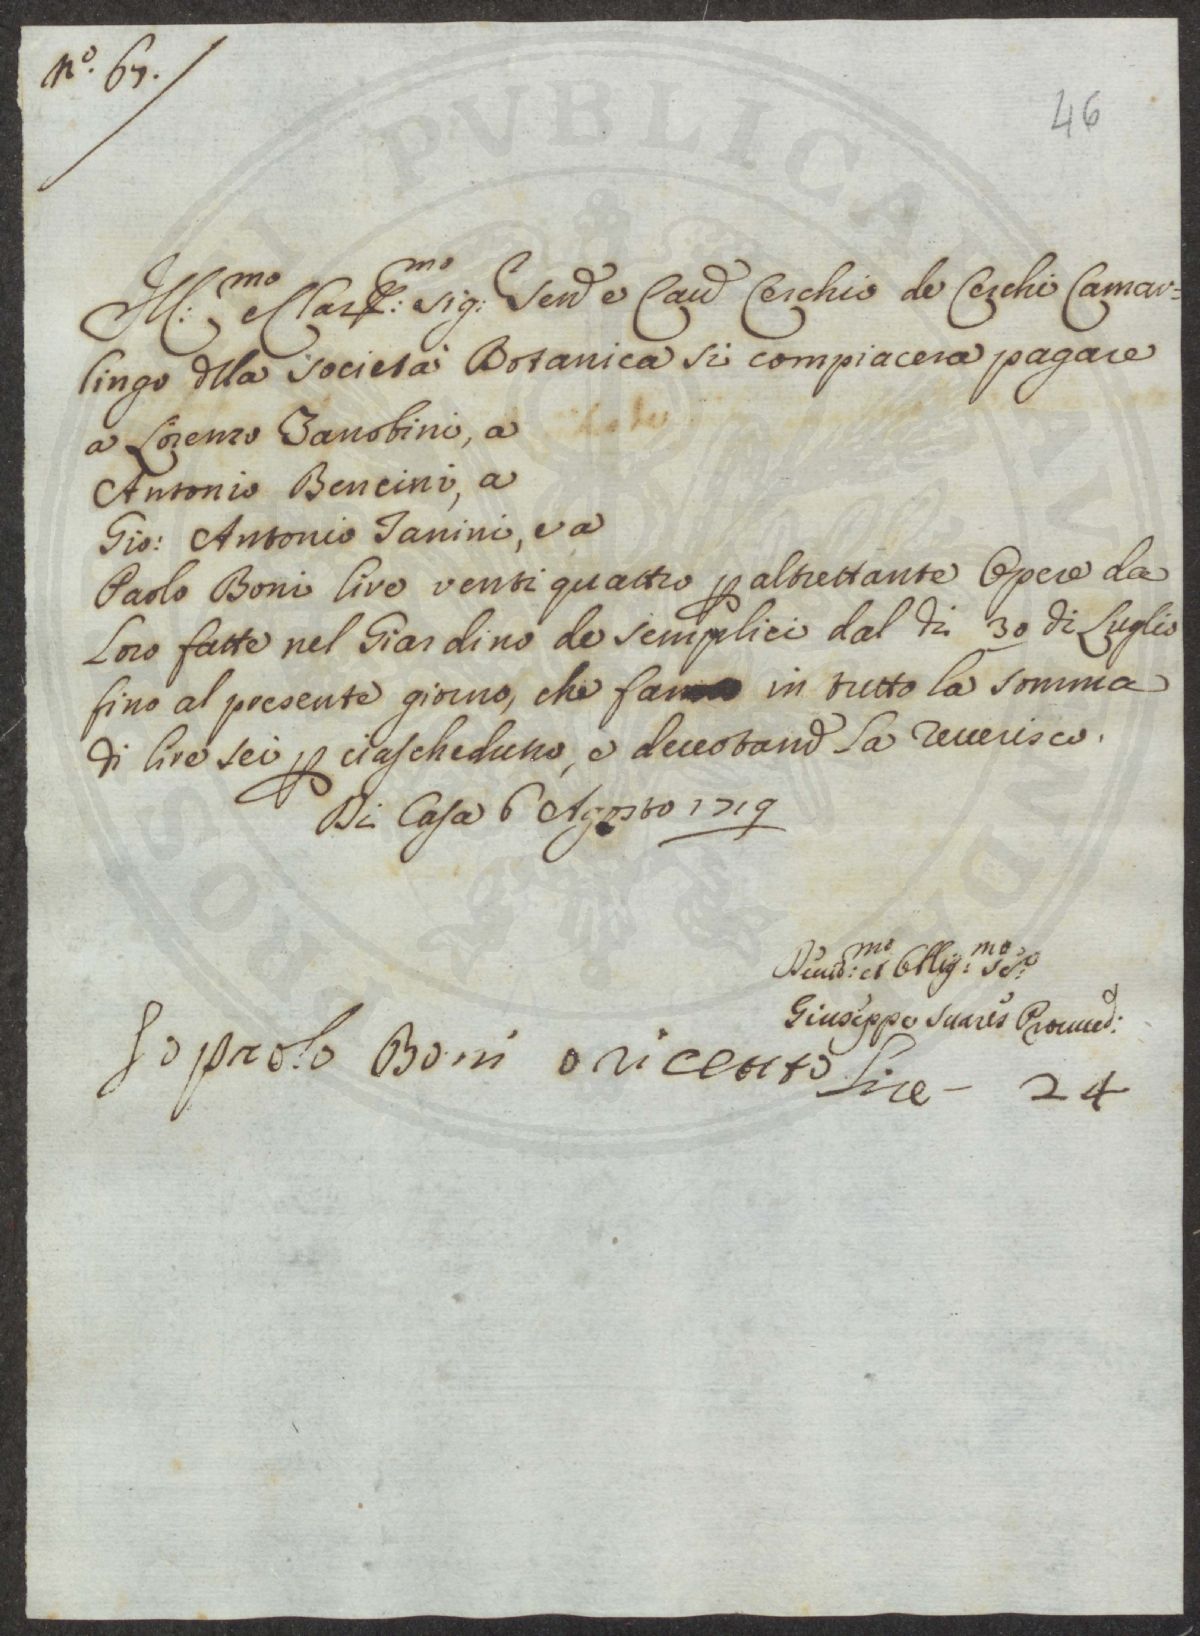 N.º 67.
46
Ill:mo e Clar:mo Sig: Send e Caud Cerchio de Cerchi Camar=
lingo della Società Botanica si compiacerà pagare
a Lorenzo Zanobini, a
Antonio Bencini, a
Gio: Antonio Janini, e a
Paolo Boni lire venti quattro p altrettante Opere da
Loro fatte nel Giardino de Semplici dal di 30 di Luglio
fino al presente giorno, che fanno in tutto la somma
di lire sei p ciascheduno, e devotamd la reverisco.
Di Casa 6 Agosto 1719
Deuo:mo et Obblig:mo Se:re
Giuseppe Suares Proved:
Io paolo Boni o riceuto Lire - 24
SOCI PVBLICAE